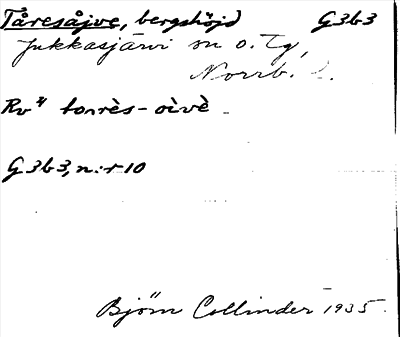 Tåresåjve, bergshöjd G3b3
Jukkasjärvi sn o. tg,
Norrb. l.
Rv 4/ tơrrès-oìvè
G3b3, n:r 10
Björn Collinder 1935.